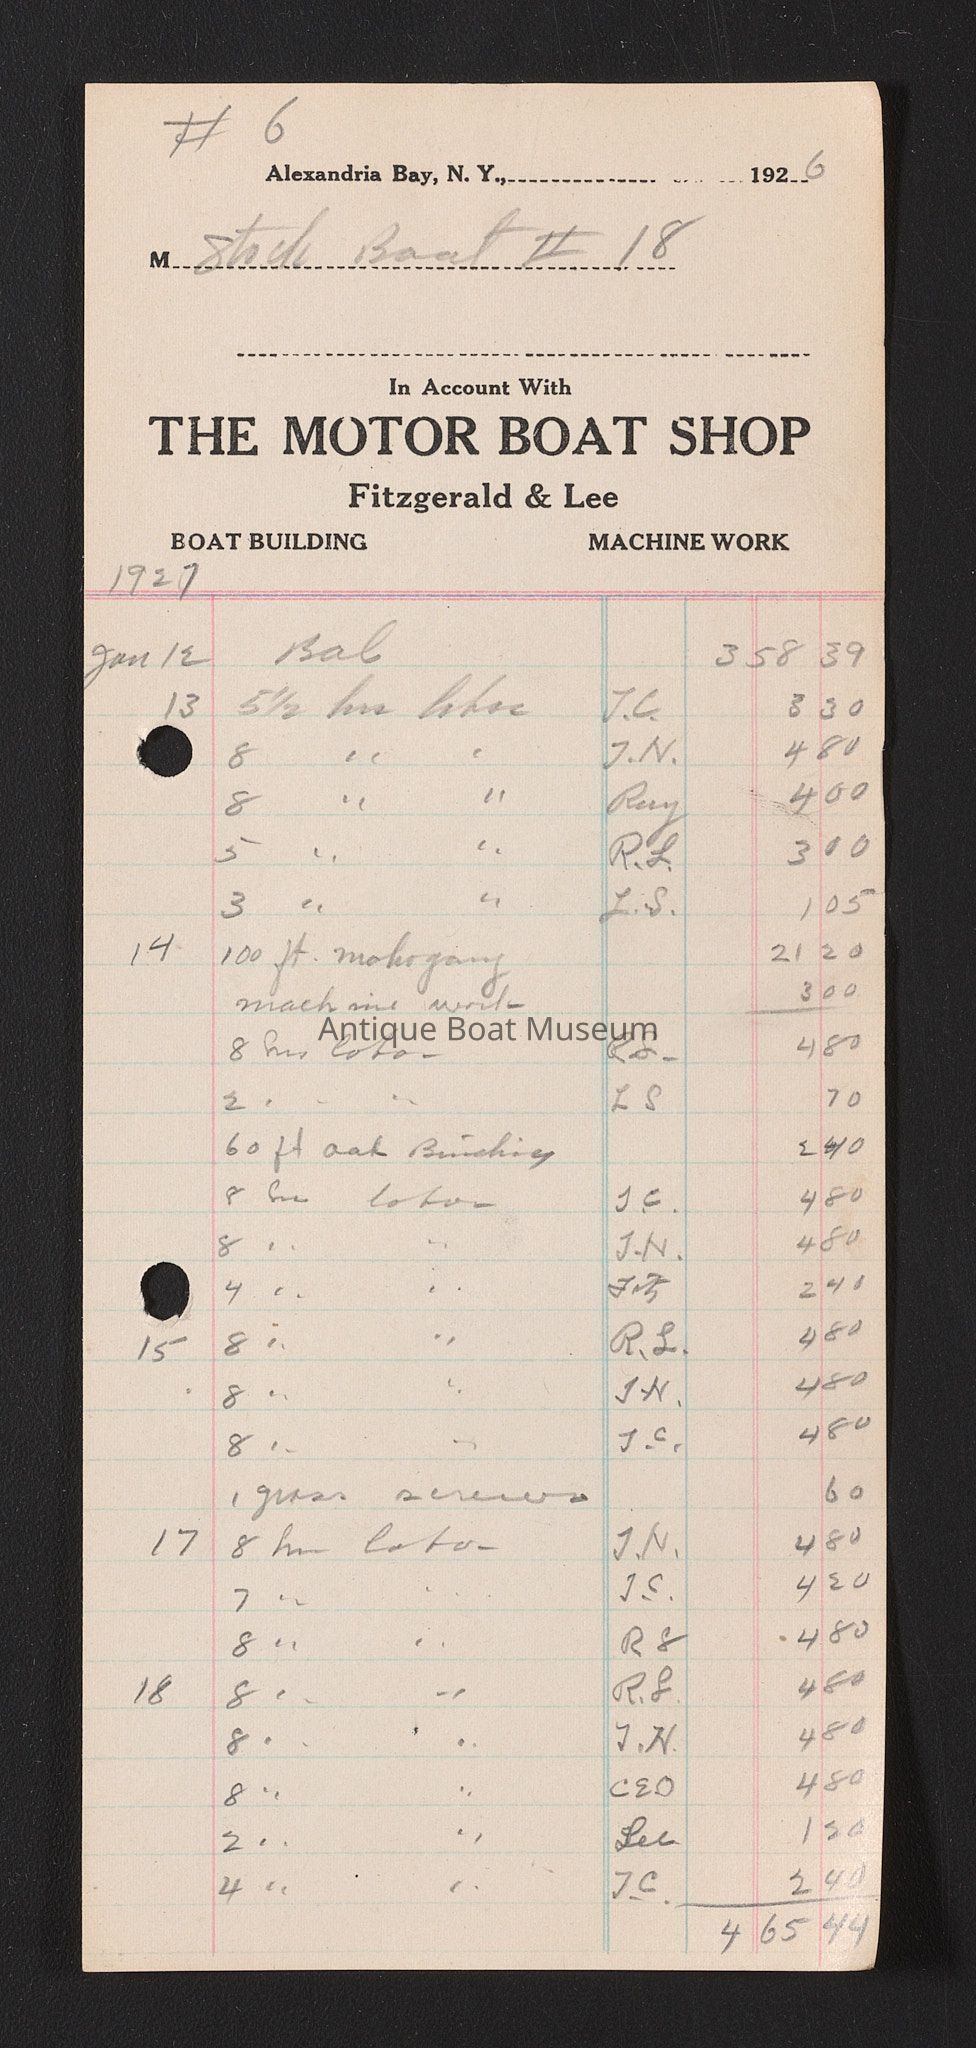 # 6
Alexandria Bay, N. Y., 192 6
M Stock Boat # 18
In Account With
THE MOTOR BOAT SHOP
Fitzgerald & Lee
BOAT BUILDING MACHINE WORK
1927
Jan 12 Bal 358 39
13 5 1/2 hrs labor T.C. 3 30
8 " " T.N. 4 80
8 " " Ray 4 00
5 " " R.L. 3 00
3 " " L.S. 1 05
14 100 ft. mahogany 21 20
machine work 3 00
Antique Boat Museum
8 hrs labor 4 80
2 " " L S 70
60 ft oak 2 40
8 hrs labor T.C. 4 80
8 " " T.N. 4 80
4 " " Fitz 2 40
15 8 " " R.L. 4 80
8 " " T.N. 4 80
8 " " T.C. 4 80
1 gross screws 60
17 8 hrs labor T.N. 4 80
7 " " T.C. 4 20
8 " " R S 4 80
18 8 " " R.L. 4 80
8 " " T.N. 4 80
8 " " CEO 4 80
2 " " Lee 1 20
4 " " T.C. 2 40
4 65 44